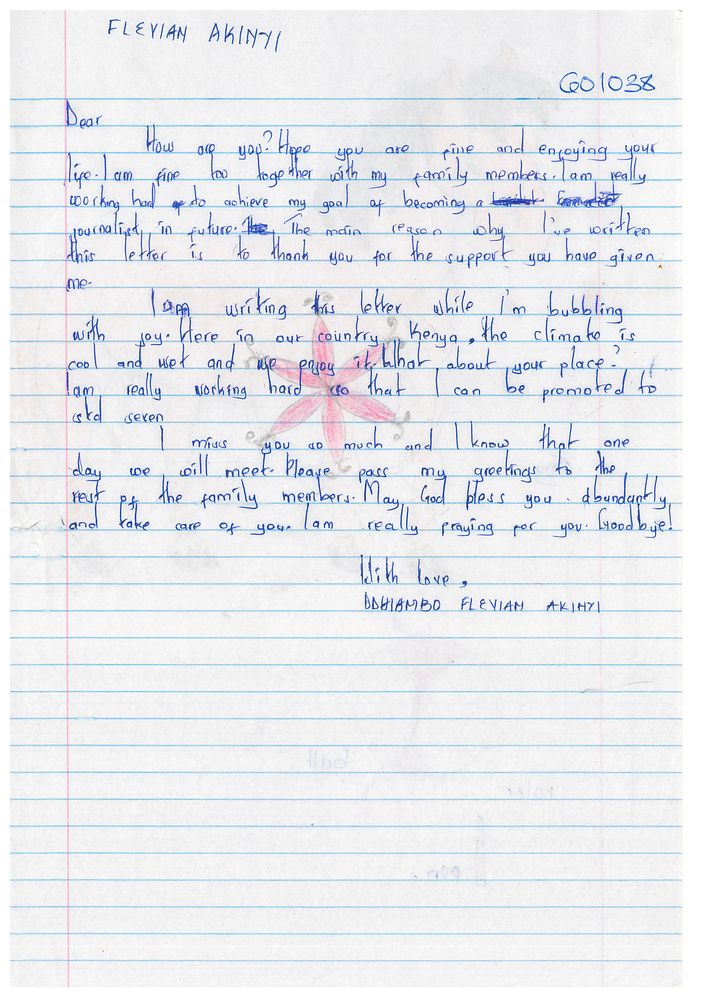 FLEVIAN AKINYI
G01038
Dear
How are you? Hope you are fine and enjoying your
life. I am fine too together with my family members. I am really
working had to achieve my goal of becoming a
journalist in future. The main reason why I've written
this letter is to thank you for the support you have given
me.
I am writing this letter while I'm bubbling
with joy. Here in our country Kenya, the climate is
cool and wet and we enjoy it. What about your place?
I am really working hard so that I can be promoted to
std seven
I miss you so much and I know that one
day we will meet. Please pass my greetings to the
rest of the family members. May God bless you abundantly
and take care of you. I am really praying for you. Goodbye!
With love,
ODHIAMBO FLEVIAN AKINYI
ball
ruler
pen.